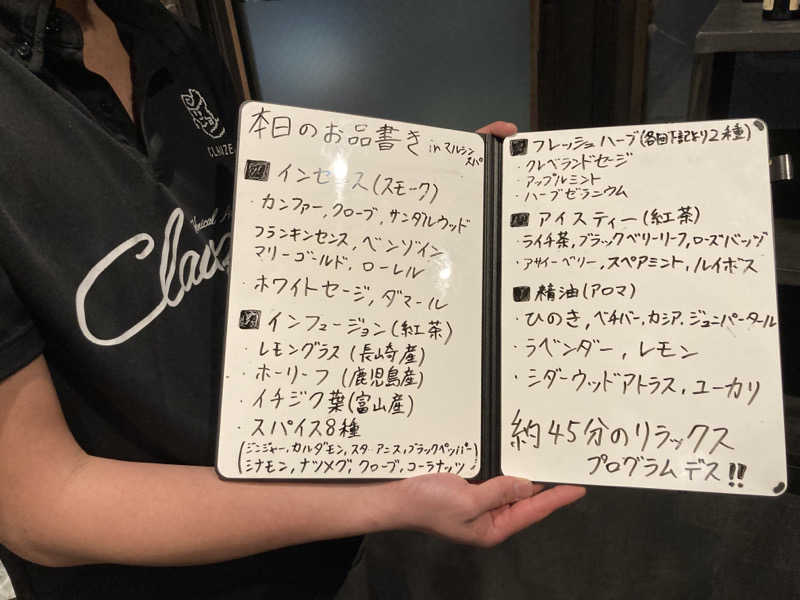 CLAUZE
Clauz
本日のお品書き in マルシンスパ
インセンス(スモーク)
・カンファー,クローブ,サンダルウッド
フランキンセンス,ベンゾイン
マリーゴールド,ローレル
・ホワイトセージ,ダマール
インフュージョン(紅茶)
・レモングラス(長崎産)
・ホーリーフ(鹿児島産)
・イチジク葉(富山産)
・スパイス8種
(ジンジャー,カルダモン,スターアニス,ブラックペッパー
シナモン,ナツメグ,クローブ,コーラナッツ)
フレッシュハーブ(各回下記より2種)
・クレベランドセージ
・アップルミント
・ハーブゼラニウム
アイスティー(紅茶)
・ライチ茶,ブラックベリーリーフ,ローズバッヅ
・アサイーベリー,スペアミント,ルイボス
精油(アロマ)
・ひのき,ベチバー,カシア,ジュニパータール
・ラベンダー,レモン
・シダーウッドアトラス,ユーカリ
約45分のリラックス
プログラムデス!!